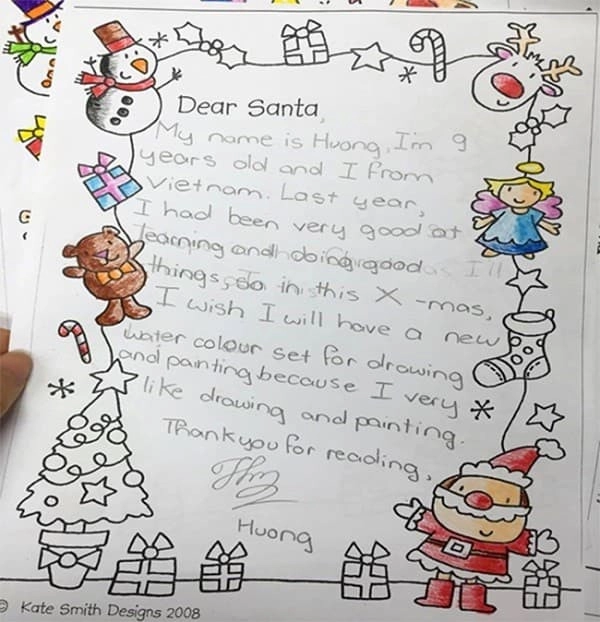 Dear Santa,
My name is Huong, I'm 9
years old and I from
Vietnam. Last year,
I had been very good at
learning and doing good
things, so in this X-mas,
I wish I will have a new
water colour set for drawing
and painting because I very
like drawing and painting.
Thank you for reading,
Huong
© Kate Smith Designs 2008